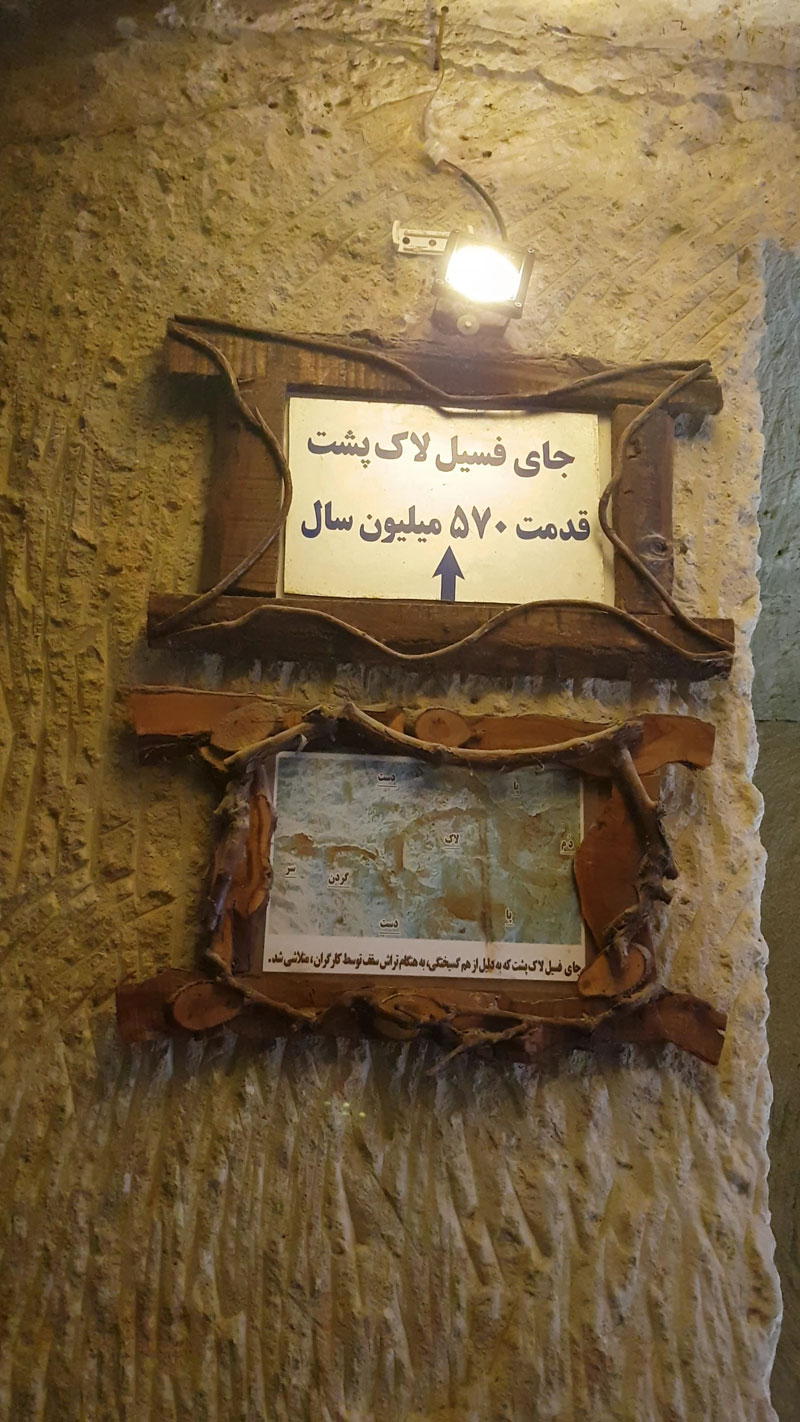 جای فسیل لاک پشت
قدمت ۵۷۰ میلیون سال
دست
پا
لاک
دُم
سر
گردن
دست
پا
جای فسیل لاک پشت که به دلیل از هم گسیختگی، به هنگام تراش سقف توسط کارگران، متلاشی شد.